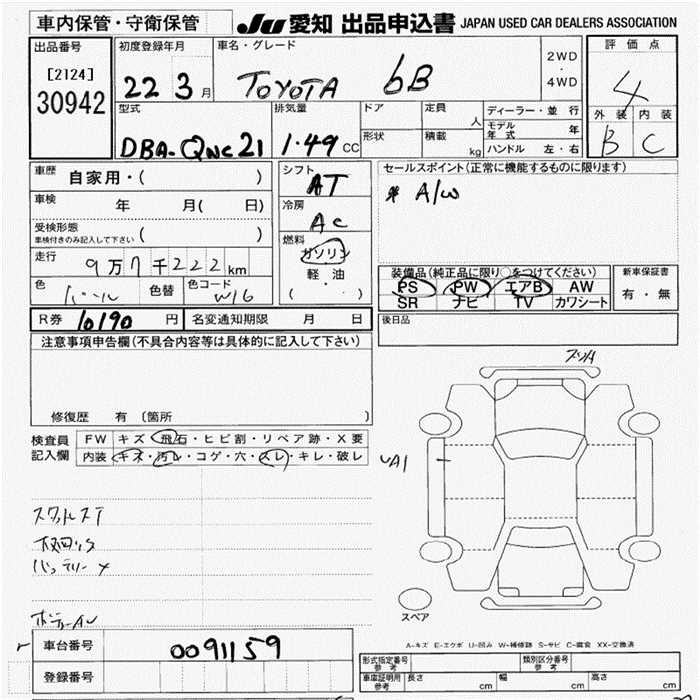 車内保管・守衛保管
JU 愛知 出品申込書 JAPAN USED CAR DEALERS ASSOCIATION
出品番号 初度登録年月 車名・グレード 2WD ・ 4WD 評価点
[2124] 22 3月 TOYOTA bB 4
30942
型式 排気量 ドア 定員 人 ディーラー・並行 外装 内装
モデル年式 年
DBA-QNC21 1.49 CC 形状 積載 kg ハンドル 左・右 B C
車歴 自家用・( ) シフト AT セールスポイント(正常に機能するものに限ります)
車検 年 月( 日) 冷房 AC * A/W
受検形態 車検付きのみ記入して下さい ( )
燃料 ガソリン 軽油 ( ・ )
走行 9万7千222km
装備品(純正品に限り○をつけてください) 新車保証書
色 パール 色替 色コード W16 PS PW エアB AW 有・無
SR ナビ TV カワシート
R券 10190円 名変通知期限 月 日 後日品
注意事項申告欄(不具合内容等は具体的に記入して下さい)
修復歴 有 (箇所 )
検査員記入欄 FW キズ・飛石・ヒビ割・リペア跡・X要
内装 キズ・汚レ・コゲ・穴・スレ・キレ・破レ
UA1
バッテリーメ
スペア
A-キズ E-エクボ U-凹み W-補修跡 S-サビ C-腐食 XX-交換済
車台番号 0091159
登録番号
形式指定番号 参考 類別区分番号 参考
車庫証明用 参考 長さ cm 幅 cm 高さ cm